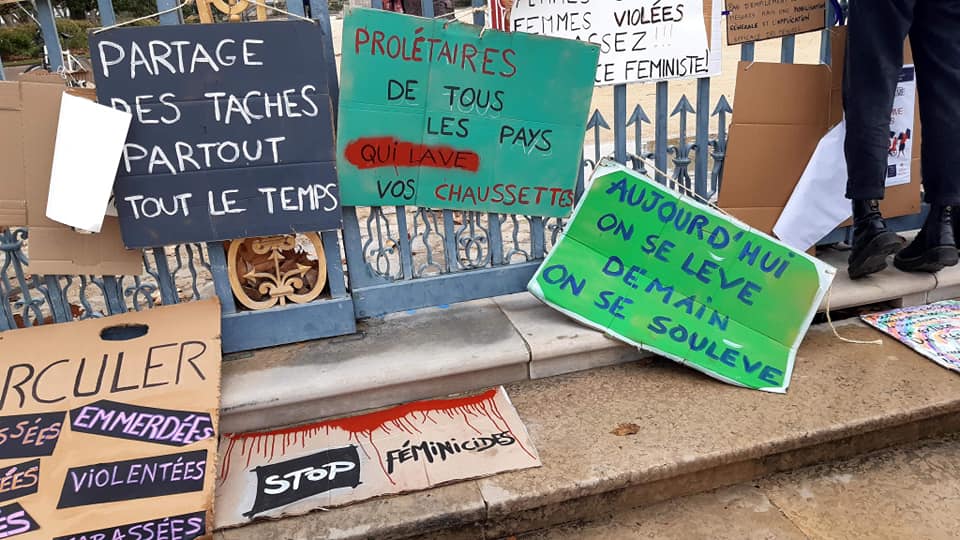 PARTAGE
DES TACHES
PARTOUT
TOUT LE TEMPS
PROLÉTAIRES
DE TOUS
LES PAYS
QUI LAVE
VOS CHAUSSETTES
FEMMES VIOLÉES
FEMINISTE!
AUJOURD'HUI
ON SE LÈVE
DEMAIN
ON SE SOULÈVE
STOP FÉMINICIDES
RCULER
SSÉES
EMMERDÉES
VIOLENTÉES
ARASSÉES